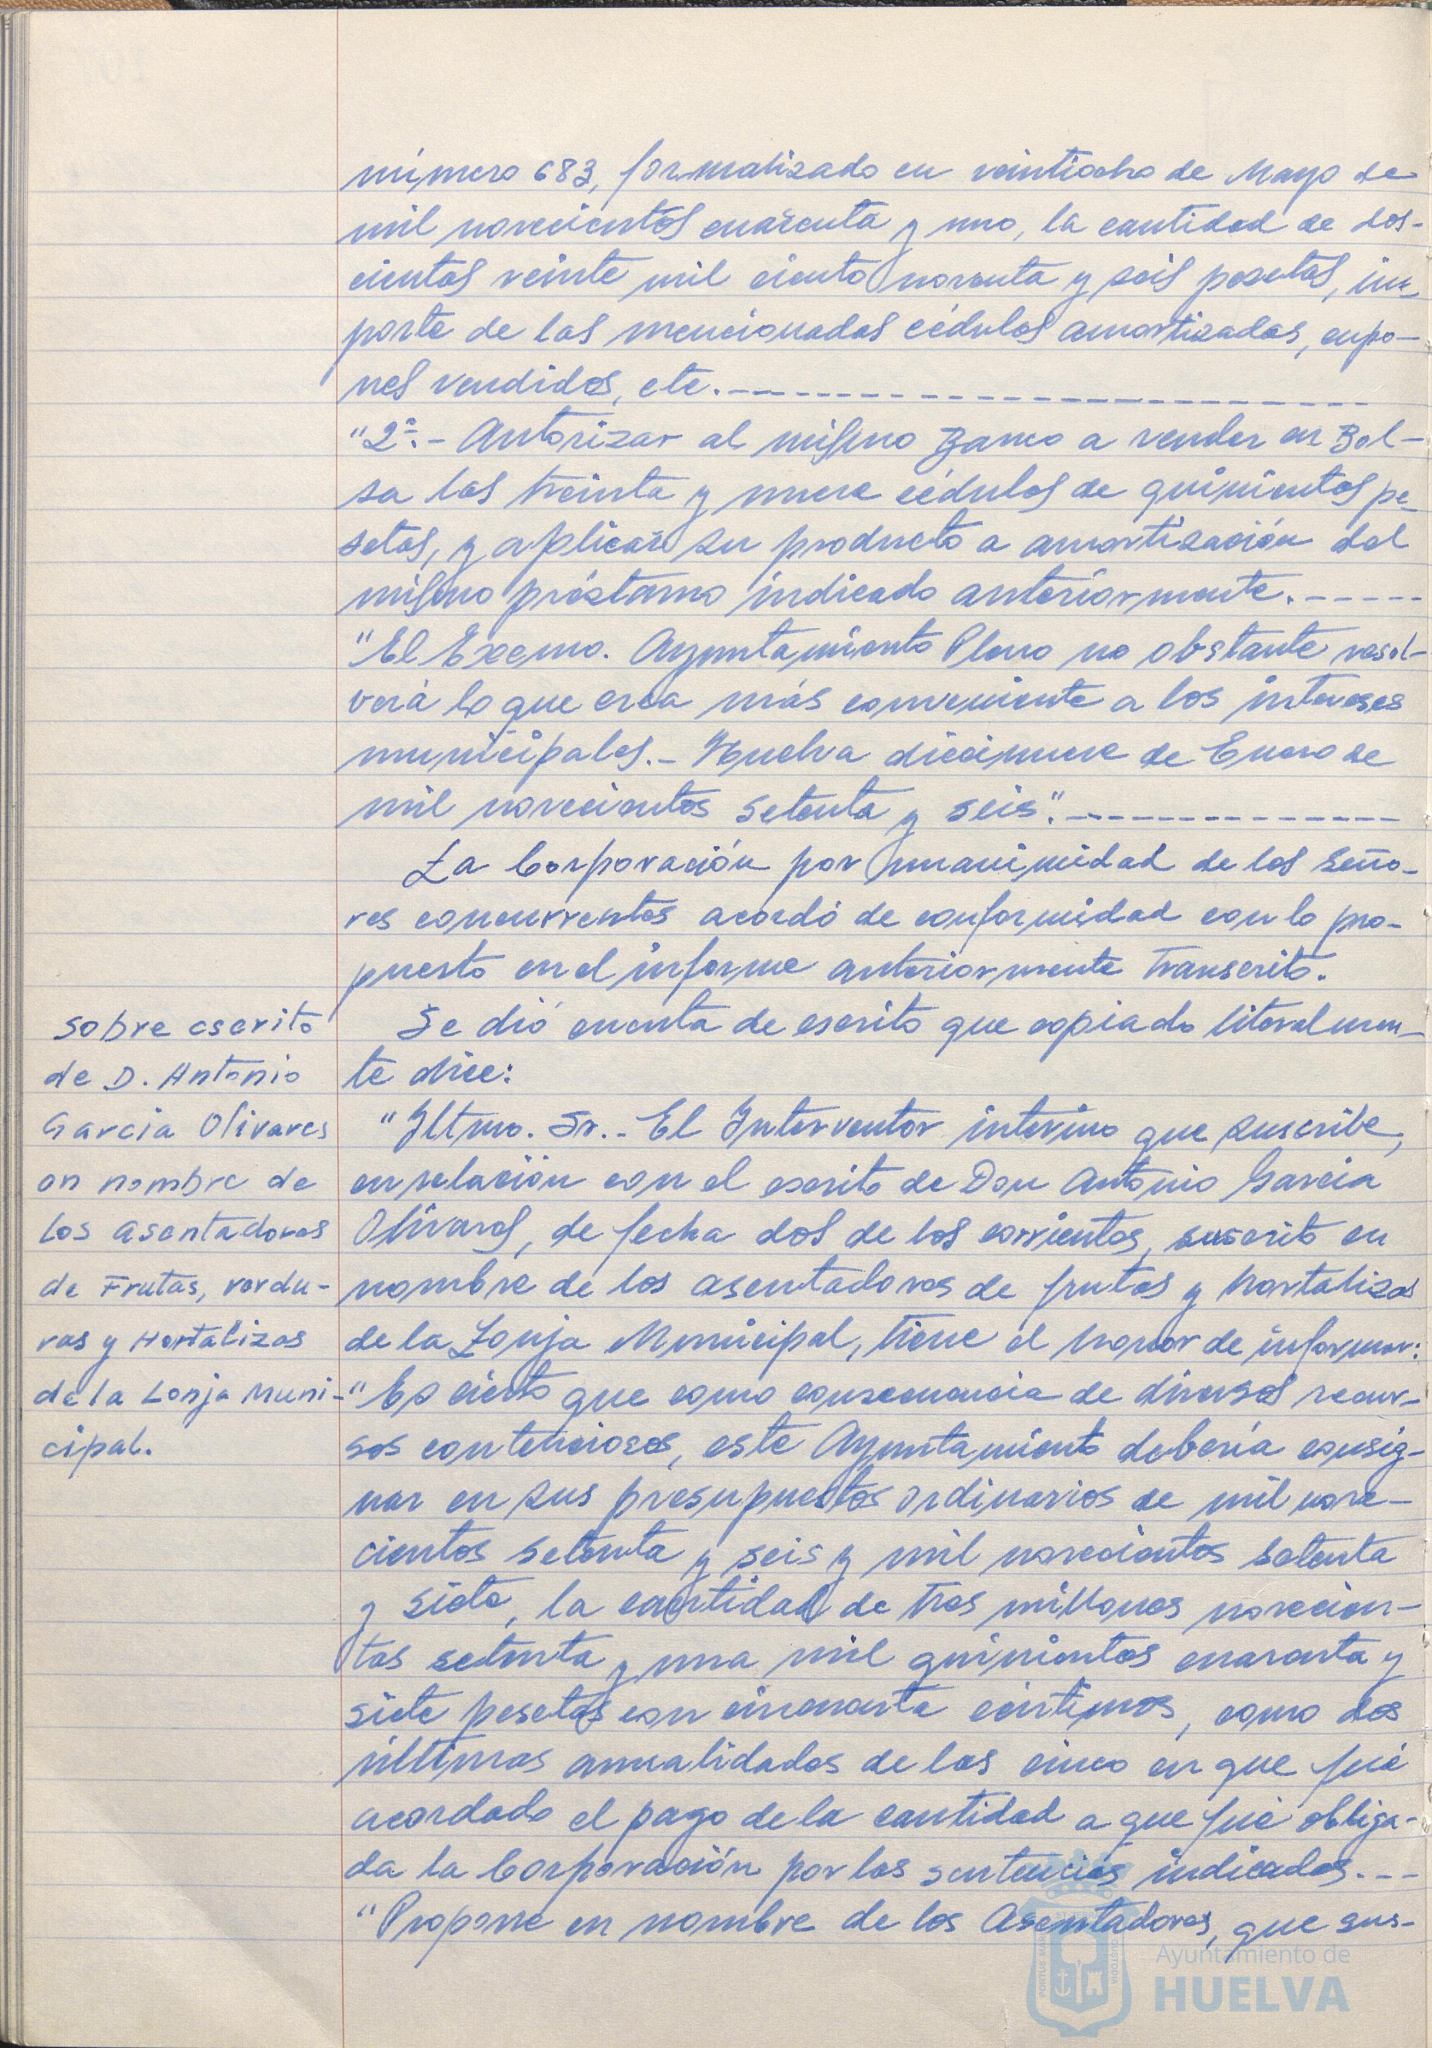 número 683, formalizado en veintiocho de Mayo de
mil novecientos cuarenta y uno, la cantidad de dos-
cientas veinte mil ciento noventa y seis pesetas, im-
porte de las mencionadas cédulas amortizadas, cupo-
nes vendidos, etc.
"2º.- Autorizar al mismo Banco a vender en Bol-
sa las treinta y nueve cédulas de quinientas pe-
setas, y aplicar su producto a amortización del
mismo préstamo indicado anteriormente.
"El Excmo. Ayuntamiento Pleno no obstante resol-
verá lo que crea más conveniente a los intereses
municipales.- Huelva diecinueve de Enero de
mil novecientos setenta y seis".
La Corporación por unanimidad de los seño-
res concurrentes acordó de conformidad con lo pro-
puesto en el informe anteriormente transcrito.
Sobre escrito
de D. Antonio
Garcia Olivares
en nombre de
los asentadores
de Frutas, verdu-
ras y Hortalizas
de la Lonja Muni-
cipal.
Se dió cuenta de escrito que copiado literalmen-
te dice:
"Iltmo. Sr.- El Interventor interino que suscribe,
en relación con el escrito de Don Antonio Garcia
Olivares, de fecha dos de los corrientes, suscrito en
nombre de los asentadores de frutas y hortalizas
de la Lonja Municipal, tiene el honor de informar:
"Es cierto que como consecuencia de diversos recur-
sos contenciosos, este Ayuntamiento debería consig-
nar en sus presupuestos ordinarios de mil nove-
cientos setenta y seis y mil novecientos setenta
y siete, la cantidad de tres millones novecien-
tas setenta y una mil quinientas cuarenta y
siete pesetas con cincuenta céntimos, como dos
últimas anualidades de las cinco en que fué
acordado el pago de la cantidad a que fué obliga-
da la Corporación por las sentencias indicadas.
"Propone en nombre de los Asentadores, que sus-
Ayuntamiento de
HUELVA